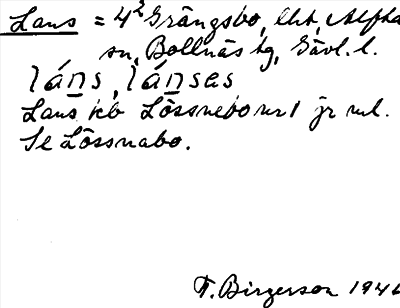 Lans = 4² Grängsbo, lht, Alfta
sn, Bollnäs tg, Gävl. l.
láns, lánses
Lans kb Lössnebo nr 1 jr ml.
Se Lössnabo.
T. Birgerson 1946